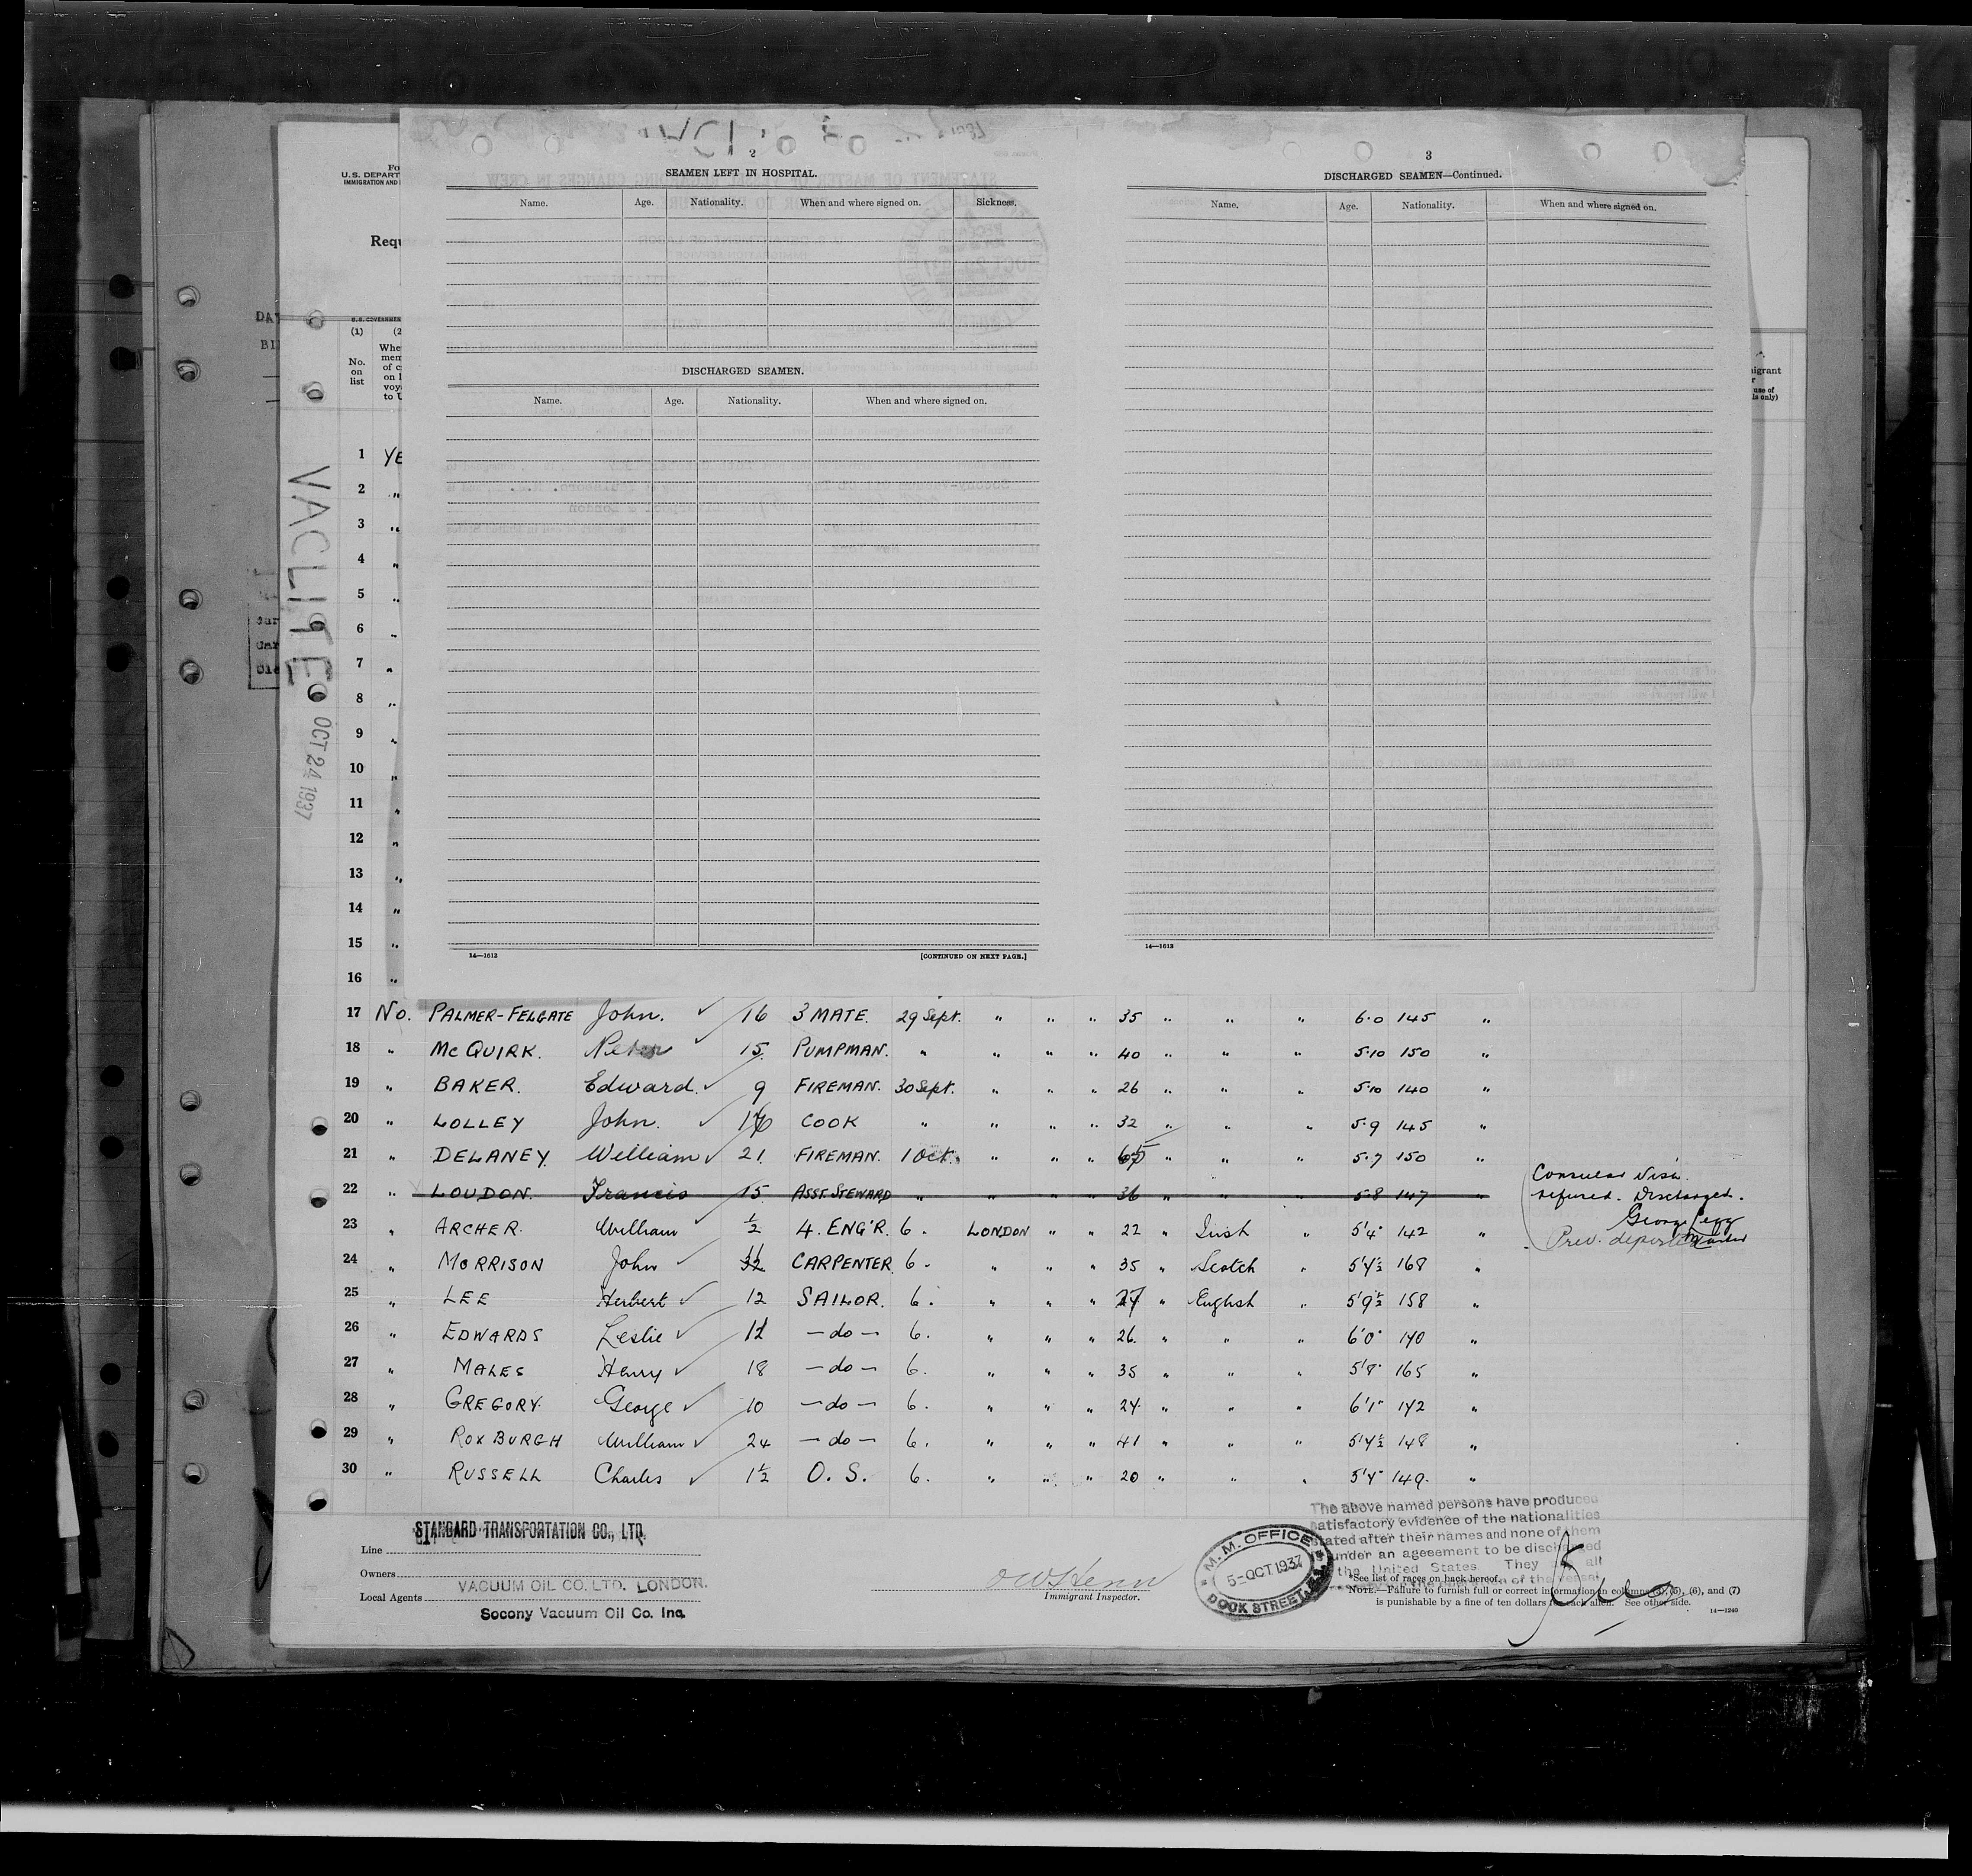 2
SEAMEN LEFT IN HOSPITAL.
Name. Age. Nationality. When and where signed on. Sickness.
DISCHARGED SEAMEN.
Name. Age. Nationality. When and where signed on.
14—1613 [CONTINUED ON NEXT PAGE.]
3
DISCHARGED SEAMEN—Continued.
Name. Age. Nationality. When and where signed on.
14—1613
U.S. DEPART
IMMIGRATION AND
Requ
(1) (2
No. on list
Whe
mem
of c
on l
voy
to U
migrant
r
use of
ls only)
VACLITE
OCT 24 1937
1 YE
2 "
3 "
4 "
5 "
6 "
7 "
8 "
9 "
10 "
11 "
12 "
13 "
14 "
15 "
16 "
17 No. PALMER-FELGATE John. 16 3 MATE. 29 Sept. " " " 35 " " " 6·0 145 "
18 " Mc QUIRK. Peter 15 PUMPMAN. " " " " 40 " " " 5·10 150 "
19 " BAKER. Edward. 9 FIREMAN. 30 Sept. " " " 26 " " " 5·10 140 "
20 " LOLLEY John. COOK " " " " 32 " " " 5·9 145 "
21 " DELANEY William 21 FIREMAN. 1 Oct. " " " " " " 5·7 150 "
22 " LOUDON. Francis 15 ASST. STEWARD " " " " 36 " " " 5·8 147 "
Consular Visa
refused. Discharged.
George Pegg
Master
Prev. deported
23 " ARCHER. William ½ 4. ENG'R. 6 . LONDON " " 22 " Irish " 5'4" 142 "
24 " MORRISON John CARPENTER 6 . " " " 35 " Scotch " 168 "
25 " LEE Herbert 12 SAILOR. 6 . " " " 27 " English " 5'9½ 158 "
26 " EDWARDS Leslie 11 — do — 6. " " " 26 " " " 6'0" 170 "
27 " MALES Henry 18 — do — 6. " " " 35 " " " 5'8" 165 "
28 " GREGORY. George 10 — do — 6. " " " 24 " " " 6'1" 172 "
29 " ROXBURGH William 24 — do — 6. " " " 41 " " " 148 "
30 " RUSSELL Charles 1½ O. S. 6. " " " 20 " " " 149 "
Line STANDARD TRANSPORTATION CO., LTD.
Owners VACUUM OIL CO. LTD. LONDON.
Local Agents Socony Vacuum Oil Co. Inc.
Immigrant Inspector.
M. M. OFFICE
5-OCT 1937
DOCK STREET, E.
The above named persons have produced
satisfactory evidence of the nationalities
stated after their names and none of them
under an agreement to be discharged
the United States They all
*See list of races on back hereof.
NOTE.—Failure to furnish full or correct information in columns (5), (6), and (7)
is punishable by a fine of ten dollars for each alien. See other side.
14—1240